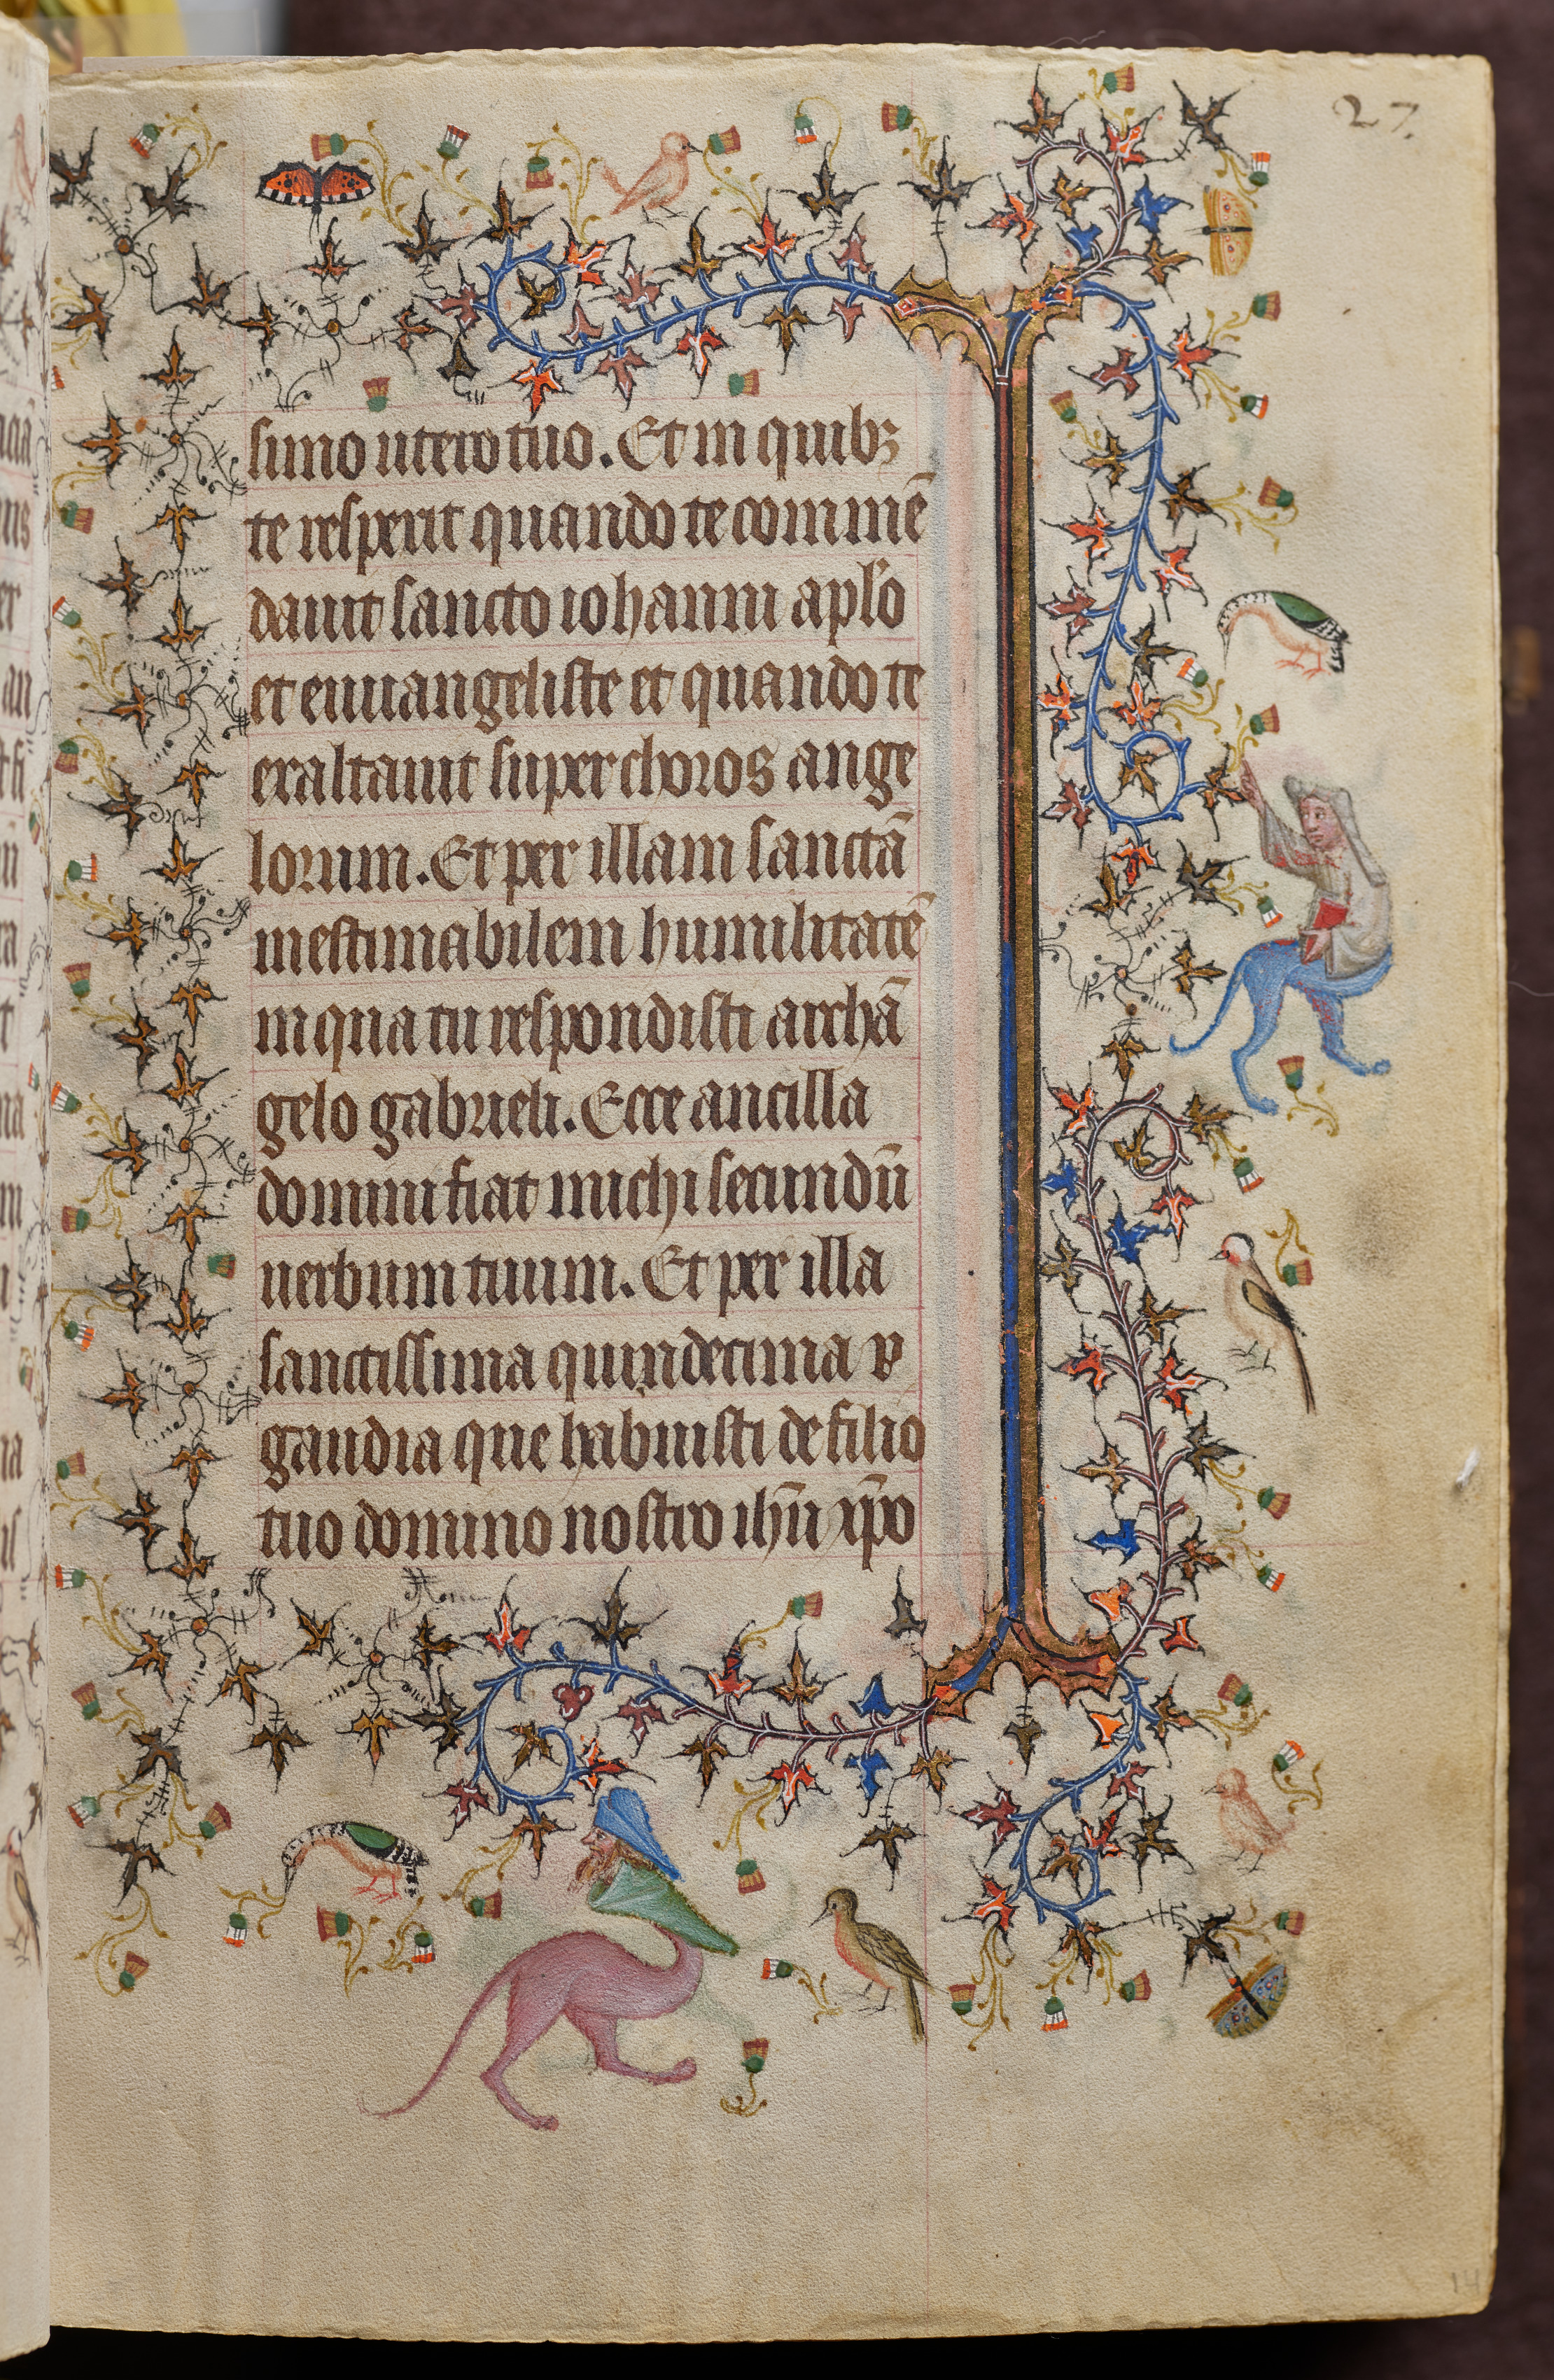 27.
simo utero tuo. Et in quibꝫ
te respexit quando te commē
dauit sancto iohanni apl'o
et euuangeliste et quando te
exaltauit super choros ange
lorum. Et per illam sanctā
inestimabilem humilitatē
in qua tu respondisti archā
gelo gabrieli. Ecce ancilla
domini fiat michi secundū
uerbum tuum. Et per illa
sanctissima quindecima v
gaudia que habuisti de filio
tuo domino nostro ihū xp̄o
14